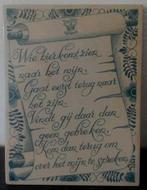 Wie hier komt zien
naar het mijn.
Gaat eerst terug naar
het zijn.
Vindt gij daar dan
geen gebreken.
Kom dan terug om
over het mijn te spreken.